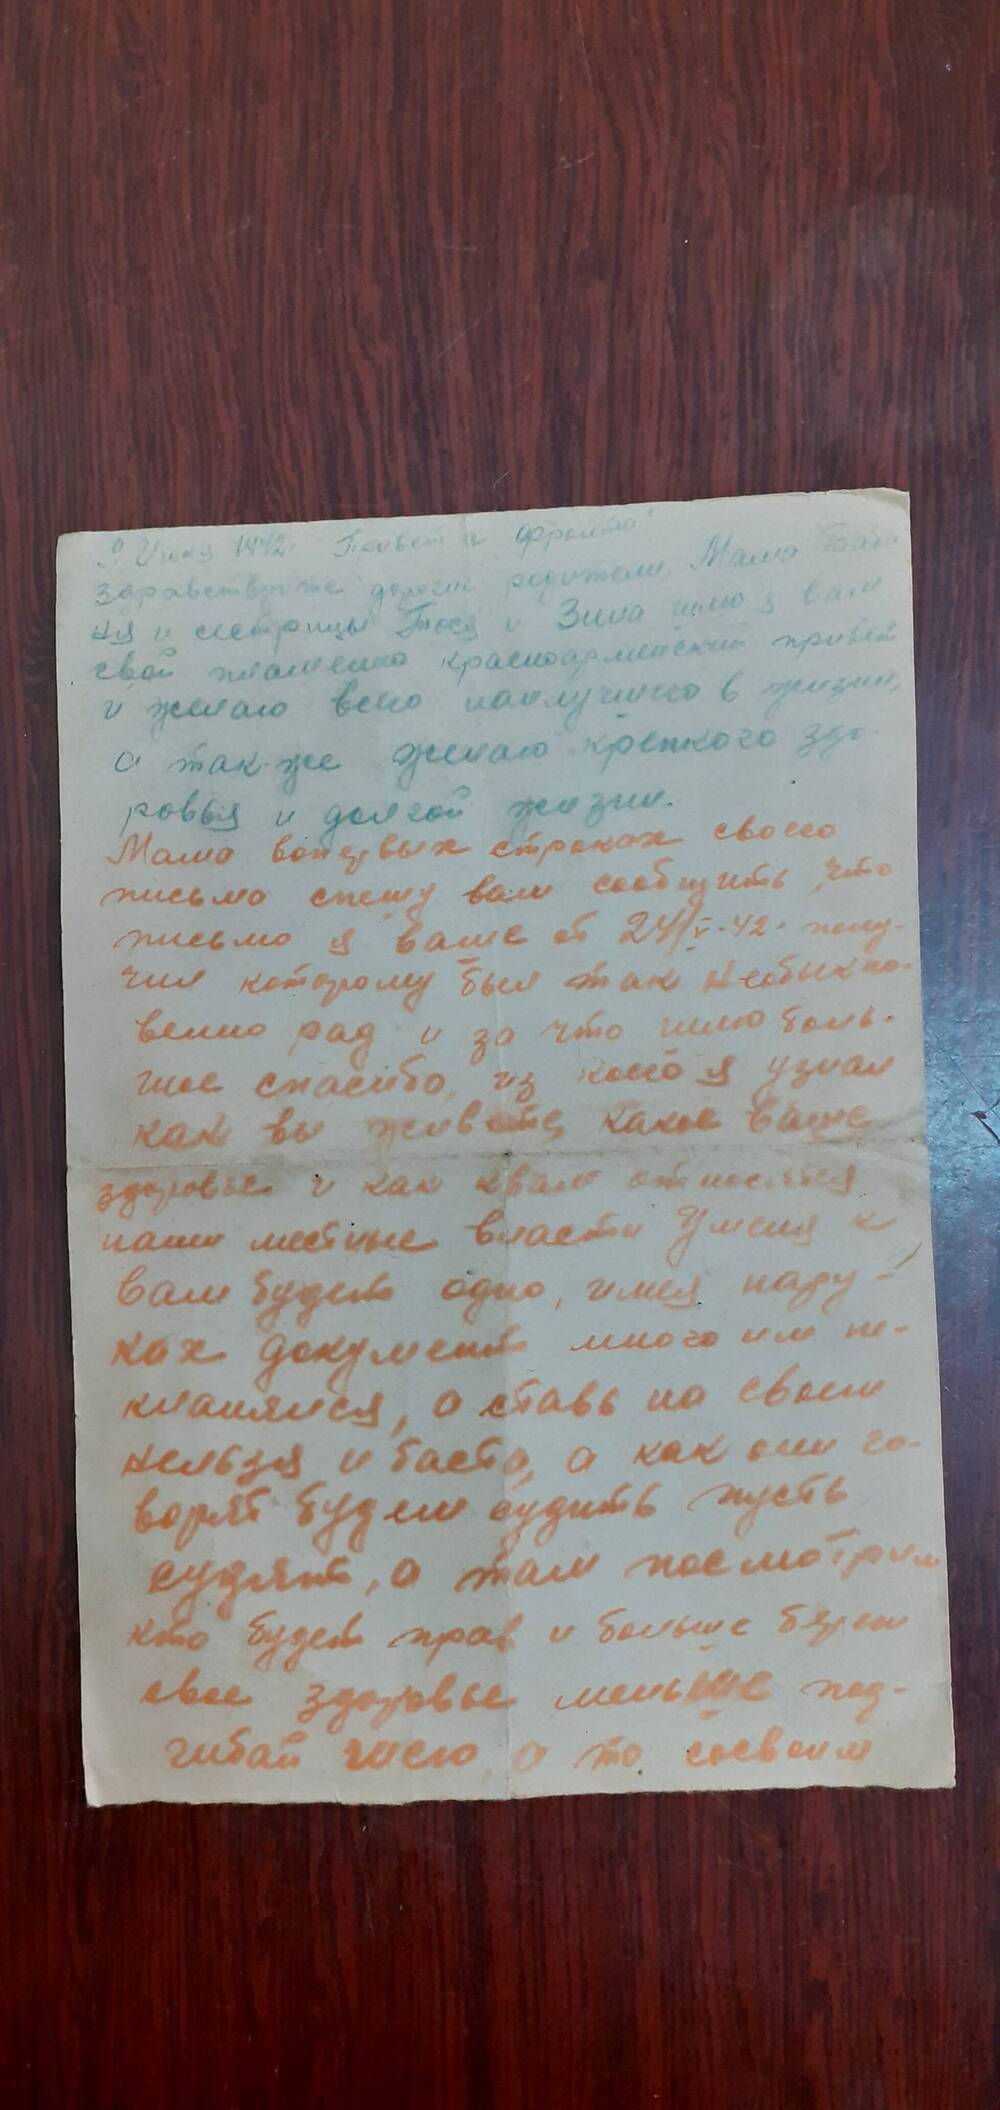 9 Июня 1942 г. Привет с фронта!
Здравствуйте дорогие родители, Мама Баба
ня и сестрицы Тося и Зина шлю я вам
свой пламенно красноармейский привет
и желаю всего наилучшего в жизни,
а так-же желаю крепкого здо-
ровья и долгой жизни.
Мама вопервых строках своего
письма спешу вам сообщить, что
письмо я ваше от 24/V-42. полу-
чил которому был так необыкно-
венно рад и за что шлю боль-
шое спасибо, из коего я узнал
как вы живете, какое ваше
здоровье и как квам относятся
наши местные власти У меня к
вам будет одно, имея нару-
ках документ много им не-
кланяйся, а ставь на своем
нельзя и баста, а как они го-
ворят будем судить пусть
судят, а там посмотрим
кто будет прав и больше береги
свое здоровье меньше под-
чивай, а то совсем